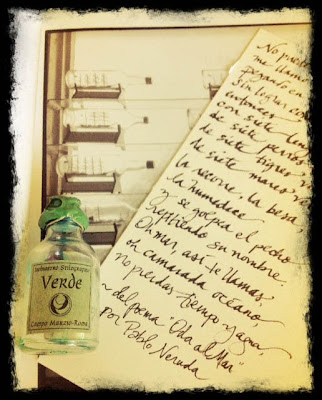 No puede
me llamo
pegando en
sin lograr con
entonces
con siete len
de siete perros
de siete tigres
de siete mares
la recorre, la besa
la humedece
y se golpea el pecho
repitiendo su nombre.
Oh mar, así te llamas,
oh camarada océano,
no pierdas tiempo y agua,
~ del poema "Oda al Mar"
por Pablo Neruda
Inchiostro Stilografico
Verde
Campo Marzio-Roma